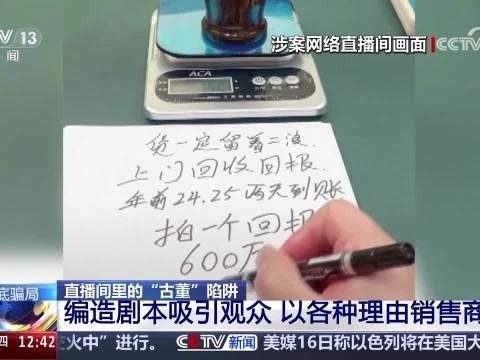 13
闻
涉案网络直播间画面
CCTV
ACA
货一定留着二波
上门回收回报
年前24.25两天到账
拍一个回报
600万
底骗局
直播间里的“古董”陷阱
编造剧本吸引观众 以各种理由销售商
四 12:42
火中”进行。
CCTV
新闻
美媒16日称以色列将在美国大